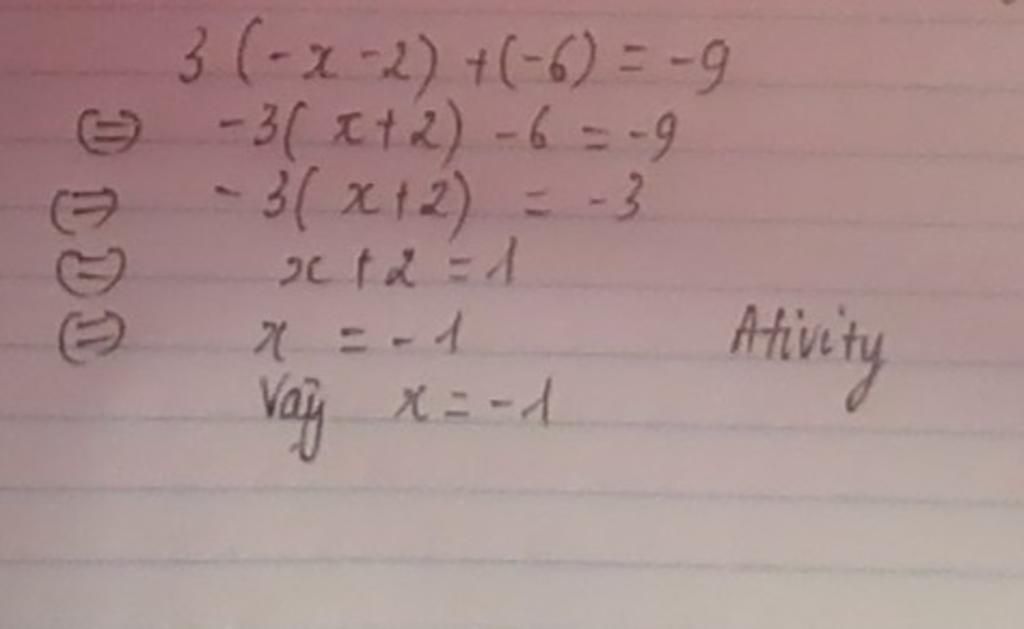 3(-x-2)+(-6)=-9
⇔ -3(x+2)-6=-9
⇔ -3(x+2) = -3
⇔ x+2=1
⇔ x = -1
Ativity
Vậy x=-1